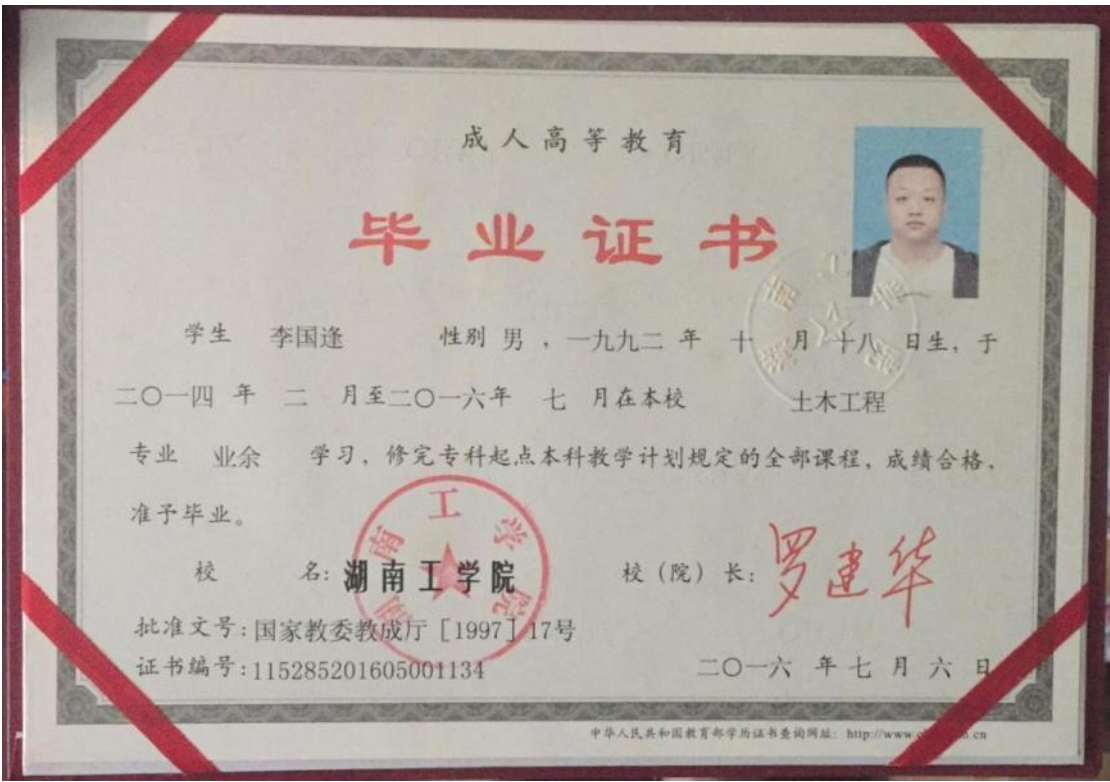 成人高等教育
毕业证书
学生 李国逢 性别 男 ，一九九二 年 十 月 十八 日生，于
二〇一四 年 二 月至二〇一六年 七 月在本校 土木工程
专业 业余 学习，修完专科起点本科教学计划规定的全部课程，成绩合格，
准予毕业。
校 名：湖南工学院 校（院）长：罗建华
湖南工学院
批准文号：国家教委教成厅［1997］17号
证书编号：115285201605001134 二〇一六 年 七 月 六 日
中华人民共和国教育部学历证书查询网址：http://www.